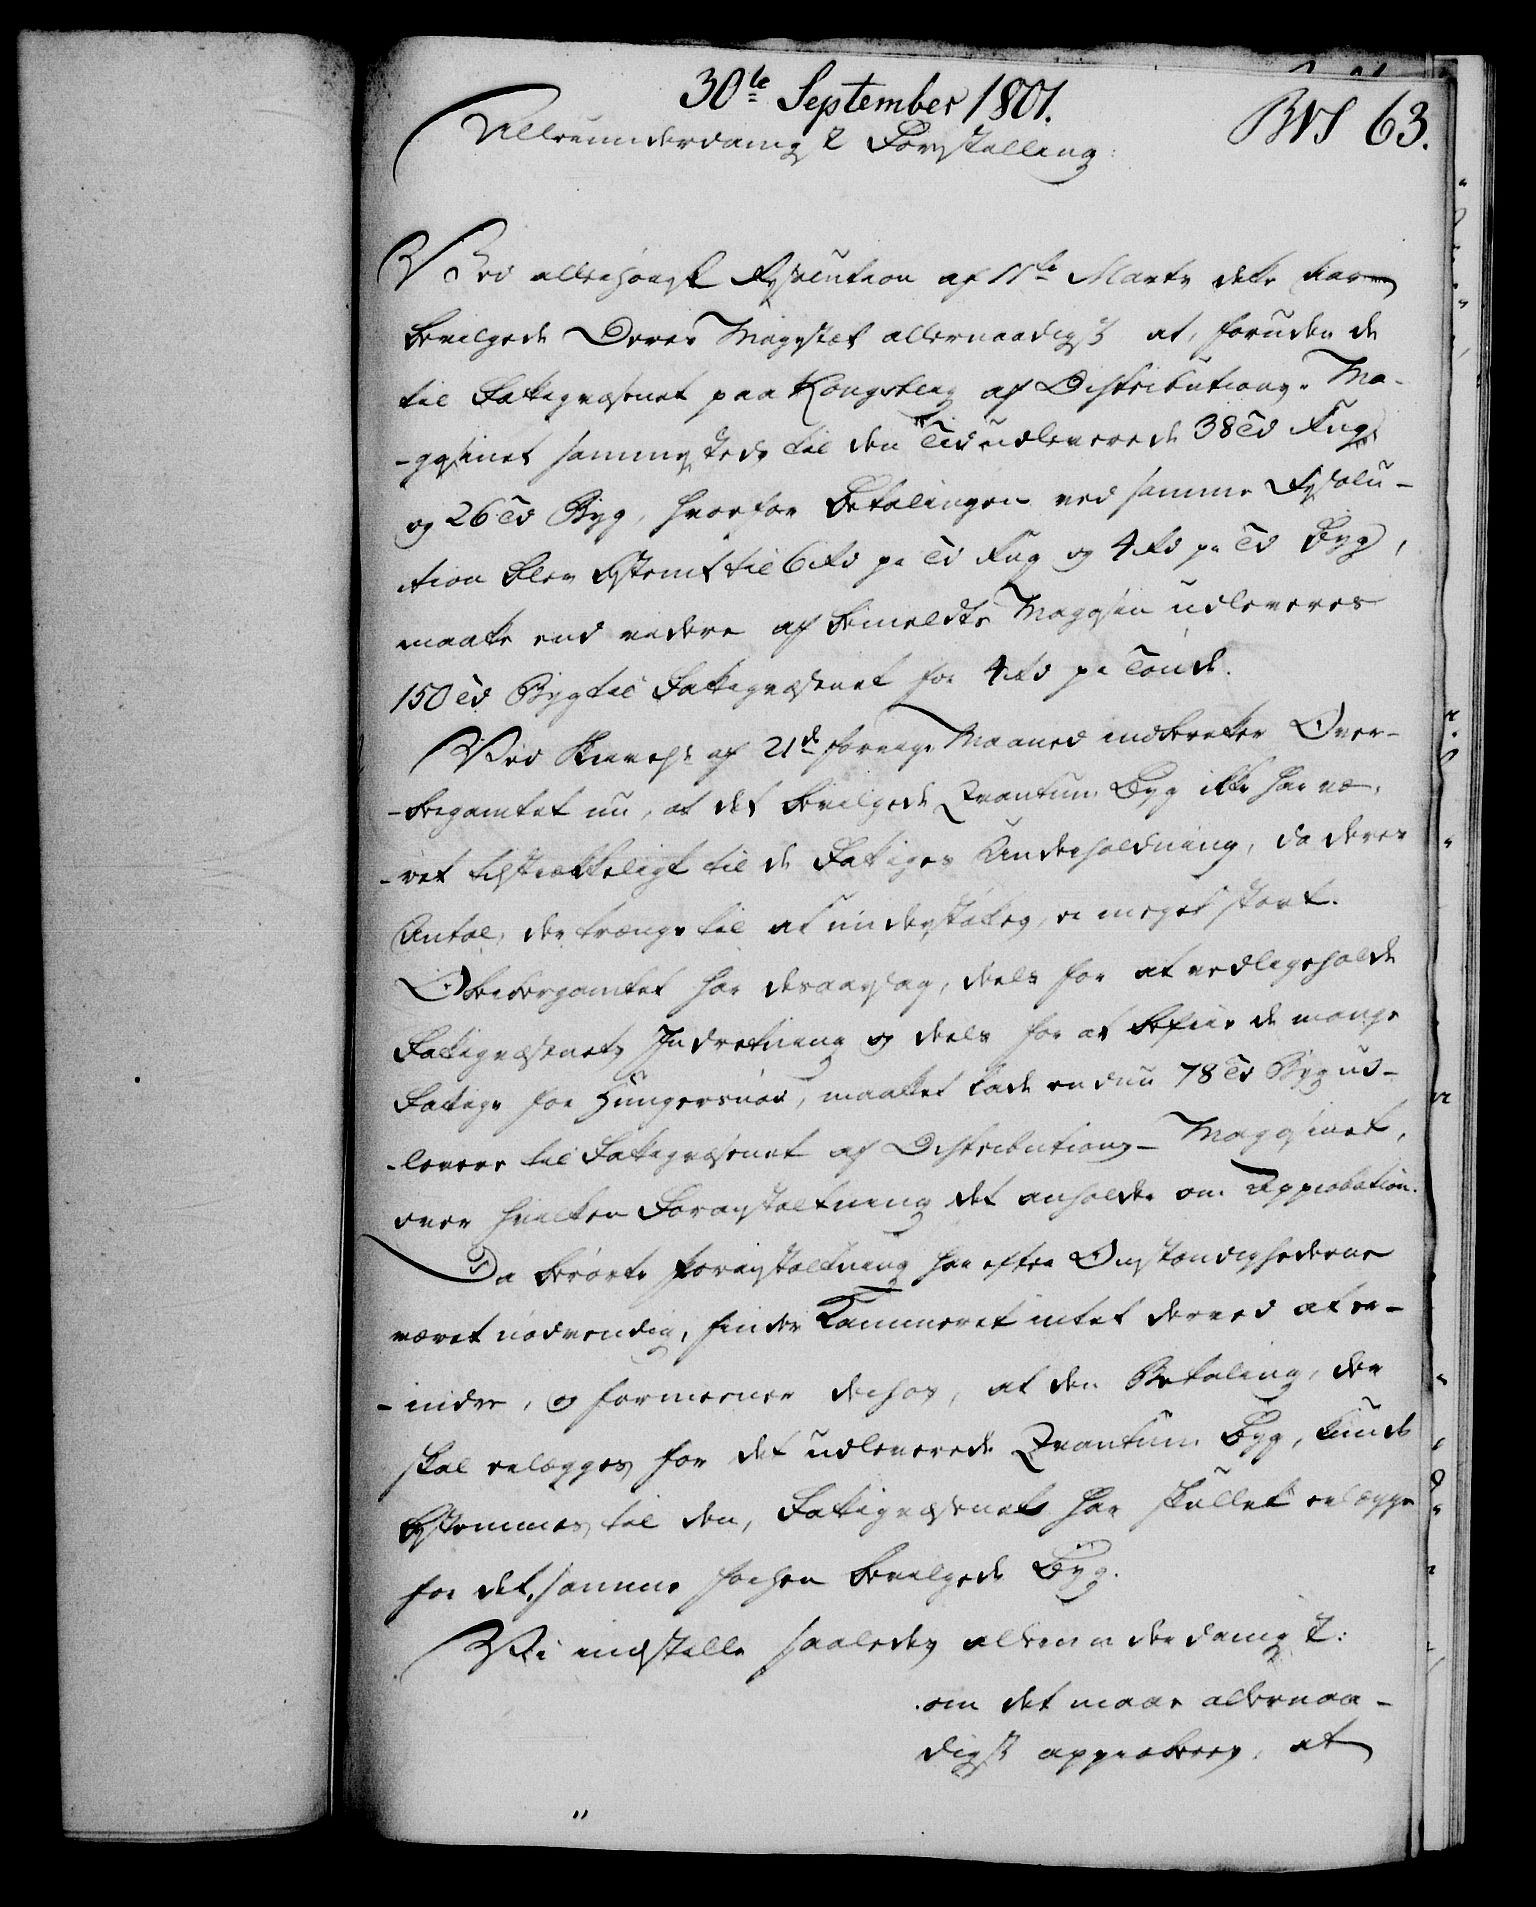 30te September 1801.
BVS 63.
Allerunderdanigst Forestilling:
Ved allerhöieste Resolution af 11te Marts dette Aar
bevilgede Deres Majestet allernaadigst at, foruden de
til Fattigvæsenet paa Kongsberg af Distributions-Ma-
-gazinet sammesteds til den Tid udleverede 38 Td Rug
og 26 Td Byg, hvorfor Betalingen ved samme Resolu-
-tion blev bestemt til 6 Rd pr Td Rug og 4 Rd pr Td Byg,
maatte end videre af bemeldte Magazin udleveres
150 Td Byg til Fattigvæsenet for 4 Rd pr Tönde.
Ved af 21de forrige Maaned indberetter Over-
-bergamtet nu, at det bevilgede Qvantum Byg ikke har væ-
-ret tilstrækkeligt til de Fattiges Underholdning, da deres
Antal, der trænge til at understöttes, er meget stort.
Oberbergamtet har desaarsag, deels for at vedligeholde
Fattigvæsenets Indretning og deels for at befrie de mange
Fattige for Hungersnöd, maattet lade endnu 78 Td Byg ud-
-levere til Fattigvæsenet af Distributions-Magazinet,
over hvilken Foranstaltning det anholder om Approbation.
Da berörte Foranstaltning har efter Omstændighederne
været nödvendig, finder Kammeret intet derved at er-
-indre, og formeener derhos, at den Betaling, der
skal erlægges for det udleverede Qvantum Byg, kunde
bestemmes til den, Fattigvæsenet har skullet erlægge
for det, samme forhen bevilgede Byg.
Vi indstille saaledes allerunderdanigst:
om det maae allernaa-
digst approberes, at
"